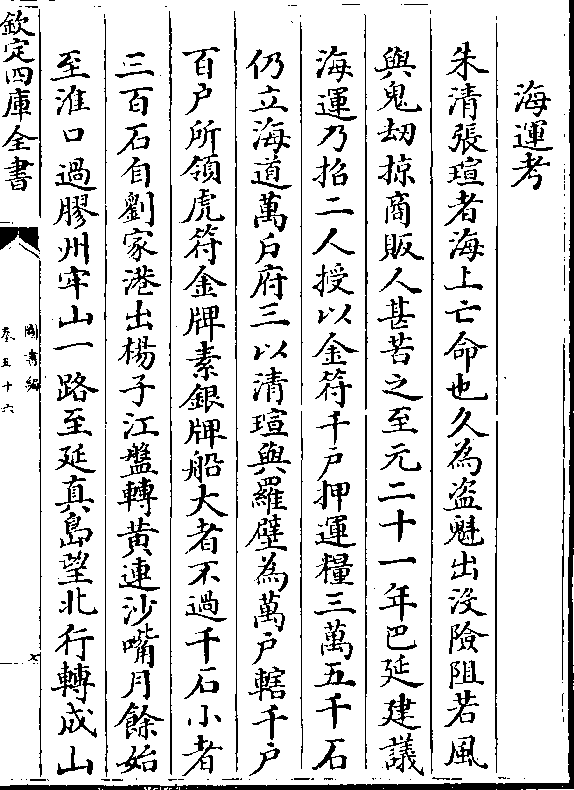 海運考
朱清張瑄者海上亡命也久為盜魁出没險阻若風
與鬼刼掠商販人甚苦之至元二十一年巴延建議
海運乃招二人授以金符千户押運糧三萬五千石
仍立海道萬户府三以清瑄與羅壁為萬户轄千户
百户所領虎符金牌素銀牌船大者不過千石小者
三百石自劉家港出楊子江盤轉黄連沙嘴月餘始
至淮口過膠州牢山一路至延真島望北行轉成山
欽定四庫全書
圖書編
卷五十六